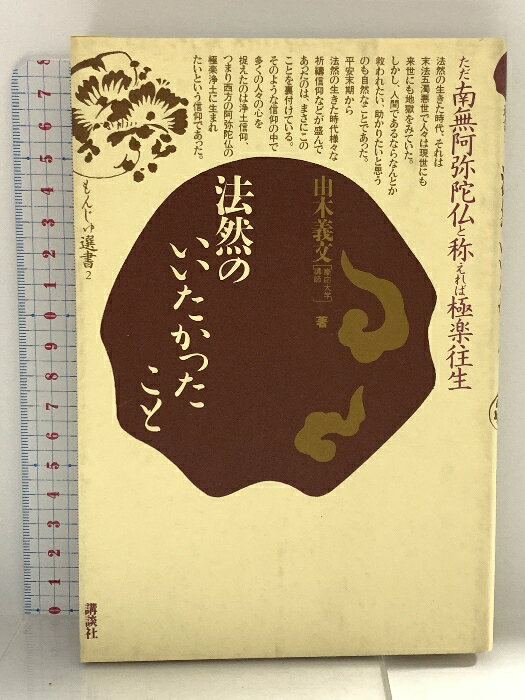 ただ南無阿弥陀仏と称えれば極楽往生
法然の生きた時代、それは
末法五濁悪世で人々は現世にも
来世にも地獄をみていた。
しかし、人間であるならなんとか
救われたい、助かりたいと思う
のも自然なことであった。
平安末期から
法然の生きた時代様々な
祈禱信仰などが盛んで
あったのは、まさにこの
ことを裏付けている。
そのような信仰の中で
多くの人々の心を
捉えたのは浄土信仰、
つまり西方の阿弥陀仏の
極楽浄土に生まれ
たいという信仰であった。
もんじゅ選書2
由木義文
講師
著
法然の
いいたかった
こと
講談社